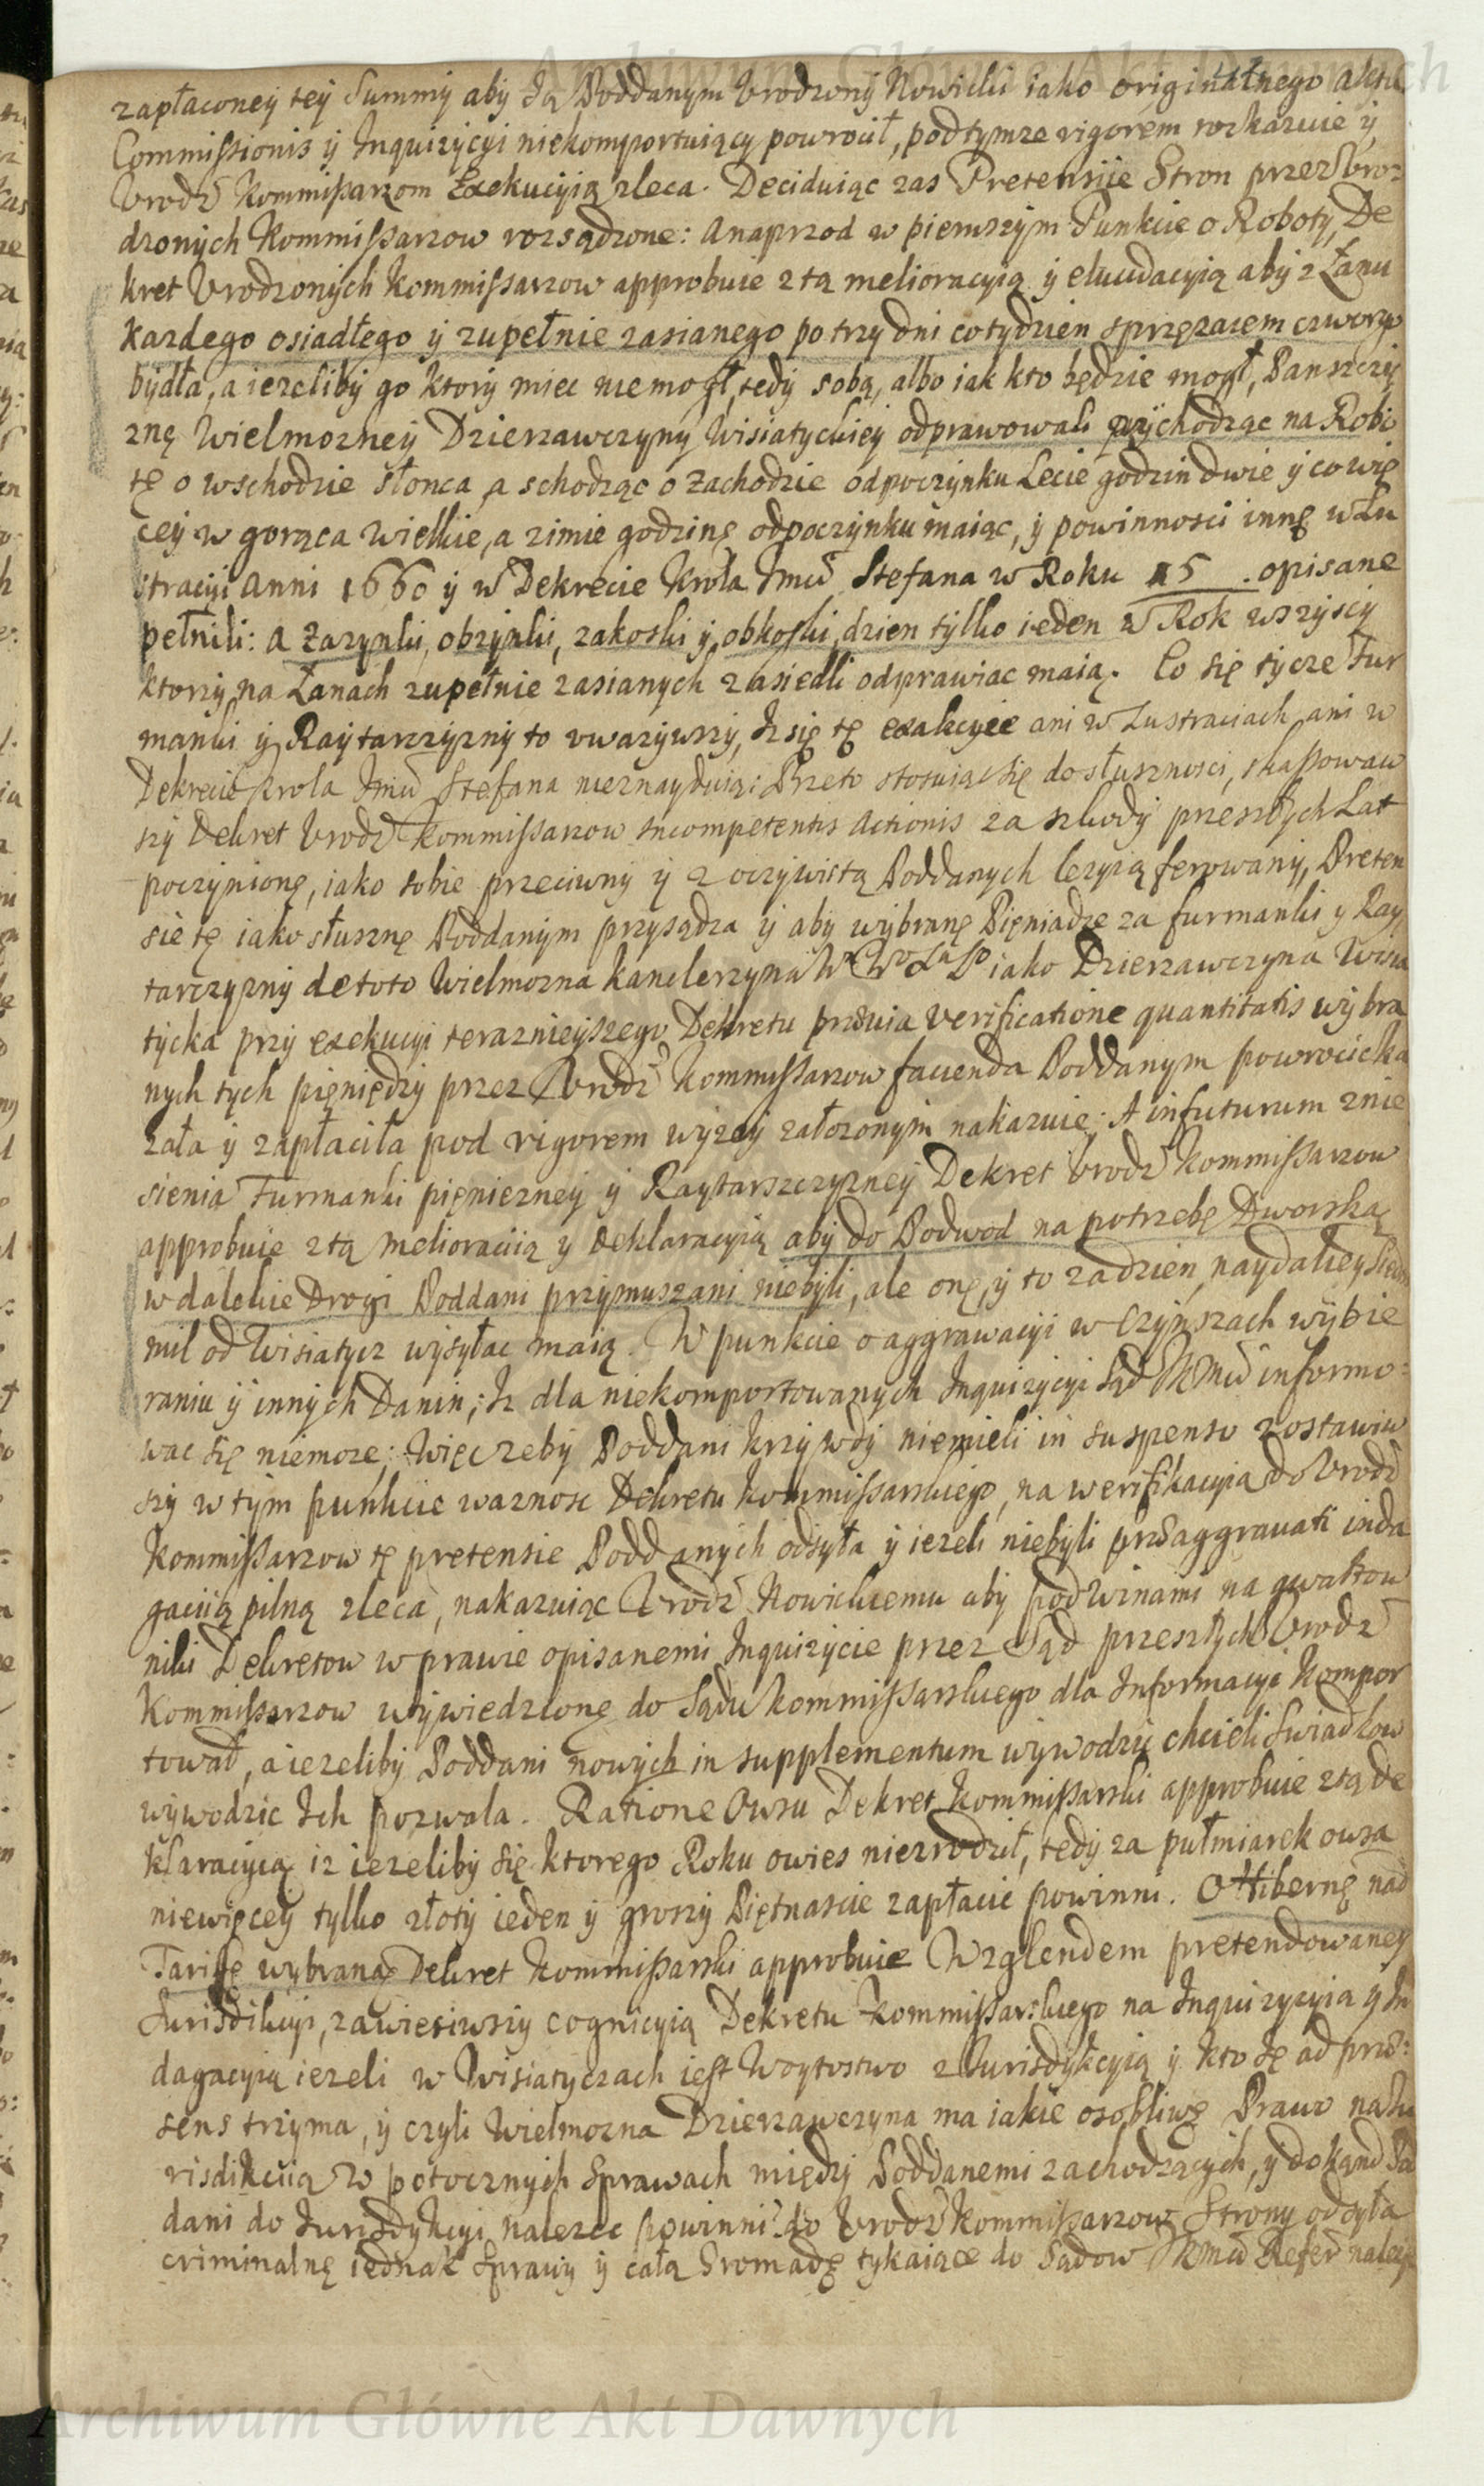 zapłaconeÿ teÿ Summÿ abÿ Ją Poddanym Vrodzonÿ Nowicki iako originalnego aktu
Commissionis ÿ Inquizÿcÿi niekomportuiącÿ powrocił, podtÿmze rigorem roskazuie ÿ
Vrodz Kommissarzom Exekucÿią zleca. Deciduiąc zas Pretensiie Stron przez Vro-
dzonÿch Kommissarzow rozsądzone: Anaprzod w pierwszÿm Punkcie o Robotÿ, De
kret Vrodzonÿch Kommissarzow approbuie z tą melioracÿią ÿ elucidacÿią abÿ z Łanu
kazdego osiadłego ÿ zupełnie zasianego po trzy dni cotÿdzien sprzęzaiem czworga
bÿdła, a iezelibÿ go ktorÿ miec nie mogł, tedÿ sobą, albo iak kto będzie mogł, Panszczÿ
znę Wielmozneÿ Dzierzawczÿnÿ Wisiatÿckieÿ odprawowali przÿchodząc na Robo
tę o wschodzie słonca, a schodząc o Zachodzie odpoczÿnku Lecie godzin dwie ÿ co wię
ceÿ w gorąca Wielkie, a zimie godzinę odpoczÿnku maiąc, ÿ powinnosci innę w Lu
stracÿi Anni 1660 ÿ w Dekrecie Krola Jmci Stefana w Roku 15 . opisane
pełnili: A Zazÿnki, obzÿnki, zakoski ÿ obkoski, dzien tÿlko ieden w Rok wszÿscÿ
ktorzÿ na Łanach zupełnie zasianÿch zasiedli odprawiac maią. Co się tÿcze Fur
manki ÿ Raÿtarzczÿznÿ to vwazÿwszÿ, Iz się tę exakcÿie ani w Lustraciach ani w
Dekrecie Krola Jmci Stefana nieznayduią: Przeto stosuiąc się do słusznosci, skassowaw
szÿ Dekret Vrodz Kommissarzow incompetentis Actionis za szkodÿ przeszłÿch Lat
poczÿnionę, iako sobie przeciwnÿ ÿ z oczÿwistą Poddanÿch lezÿią ferowanÿ, Preten
sie tę iako słusznę Poddanÿm przÿsądza ÿ abÿ wÿbranę Pięniądze za furmanki ÿ Raÿ
tarczÿznÿ de toto Wielmozna Kanclerzÿna iako Dzierzawczÿna Wisia
tÿcka przÿ exekucÿi teraznieÿszego Dekretu prævia verificatione quantitatis wÿbra
nÿch tÿch pięniędzÿ przez Vrodz Kommissarzow facienda Poddanÿm powrocicka
zała ÿ zapłaciła pod rigorem wÿzeÿ załozonÿm nakazuie: A infuturum znie
sienia Furmanki pięniezneÿ ÿ Raÿtarszczÿzneÿ Dekret Vrodz Kommissarzow
approbuie z tą melioraciią ÿ deklaracÿią abÿ do Podwod na potrzebę Dworską
w dalekie Drogi Poddani przÿmuszani niebÿli, ale onę, ÿ to za dzien naÿdaleÿ Siedm
mil od Wisiatÿcz wÿsÿłac maią. W punkcie o aggrawacÿi w Czÿnszach wÿbie
raniu ÿ innÿch Danin; Iz dla niekomportowanÿch Inquizÿcÿi Sąd JKMci informo-
wac się niemoze; Więc zebÿ Poddani krzÿwdÿ niemieli in suspenso zostawiw
szÿ w tÿm punkcie waznosc Dekretu Kommissarskiego, na werifikacÿia do Vrodz
Kommissarzow tę pretensie Poddanÿch odsÿła ÿ iezeli niebÿli præaggrauati inda
gaciią pilną zleca, nakazuiąc Vrodz Nowickiemu abÿ pod winami na gwałtow
niki Dekretow w prawie opisanemi Inquizÿcie przez Sąd przeszłÿch Vrodz
Kommissarzow wÿwiedzionę do Sądu Kommissarskiego dla Informacÿi kompor
tował, a iezelibÿ Poddani nowÿch in supplementum wÿwodzic chcieli Swiadkow
wÿwodzic Ich pozwala. Ratione Owsu Dekret Kommissarski approbuie z tą de
klaracÿią iz iezelibÿ się ktorego Roku owies niezrodził, tedÿ za pułmiarek owsa
niewięceÿ tÿlko złotÿ ieden ÿ groszÿ Piętnascie zapłacic powinni. O Hibernę nad
Tariffę wÿbraną Dekret Kommissarski approbuie Wzglendem pretendowaneÿ
Jurisdikcÿi, zawiesiwszÿ cognicÿią Dekretu Kommissarskiego na Inquizÿcÿią ÿ In
dagacÿią iezeli w Wisiatÿczach iest Woÿtostwo z Jurisdÿkcÿią ÿ kto Ję ad præ-
sens trzÿma, ÿ czÿli Wielmozna Dzierzawczÿna ma iakie osobliwę Prawo na Ju
risdikciią w potocznÿch Sprawach międzÿ Poddanemi zachodzącÿch, ÿ dokąnd Pod
dani do Jurisdÿkcÿi nalezec powinni? do Vrodz Kommissarzow Stronÿ odsÿła
criminalnę iednak Sprawÿ ÿ całą Gromadę tÿkaiące do Sądow JKMci Refer nalezÿ